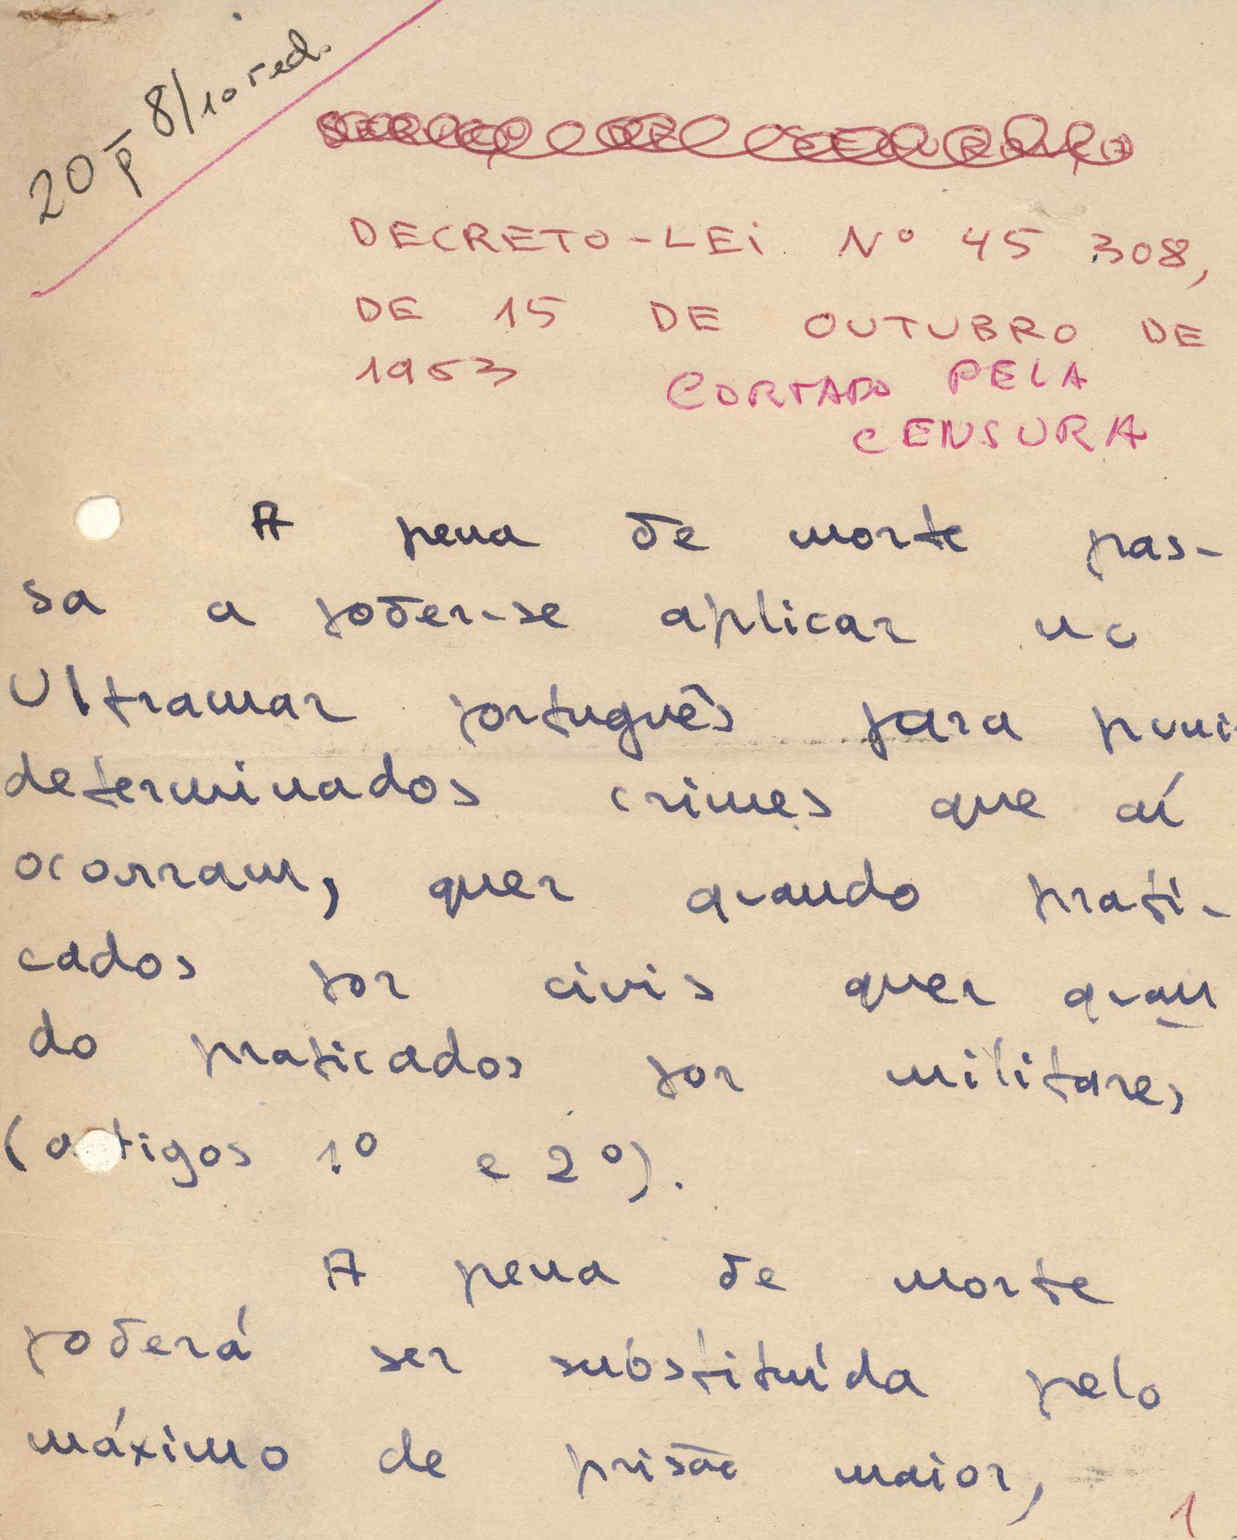 20 p 8/10 red.
DECRETO-LEI Nº 45 308,
DE 15 DE OUTUBRO DE
1953 CORTADO PELA
CENSURA
A pena de morte pas-
sa a poder-se aplicar no
Ultramar português para puni
determinados crimes que aí
ocorram, quer quando prati-
cados por civis quer quan
do praticados por militares
(artigos 1º e 2º).
A pena de morte
poderá ser substituída pelo
máximo de prisão maior,
1